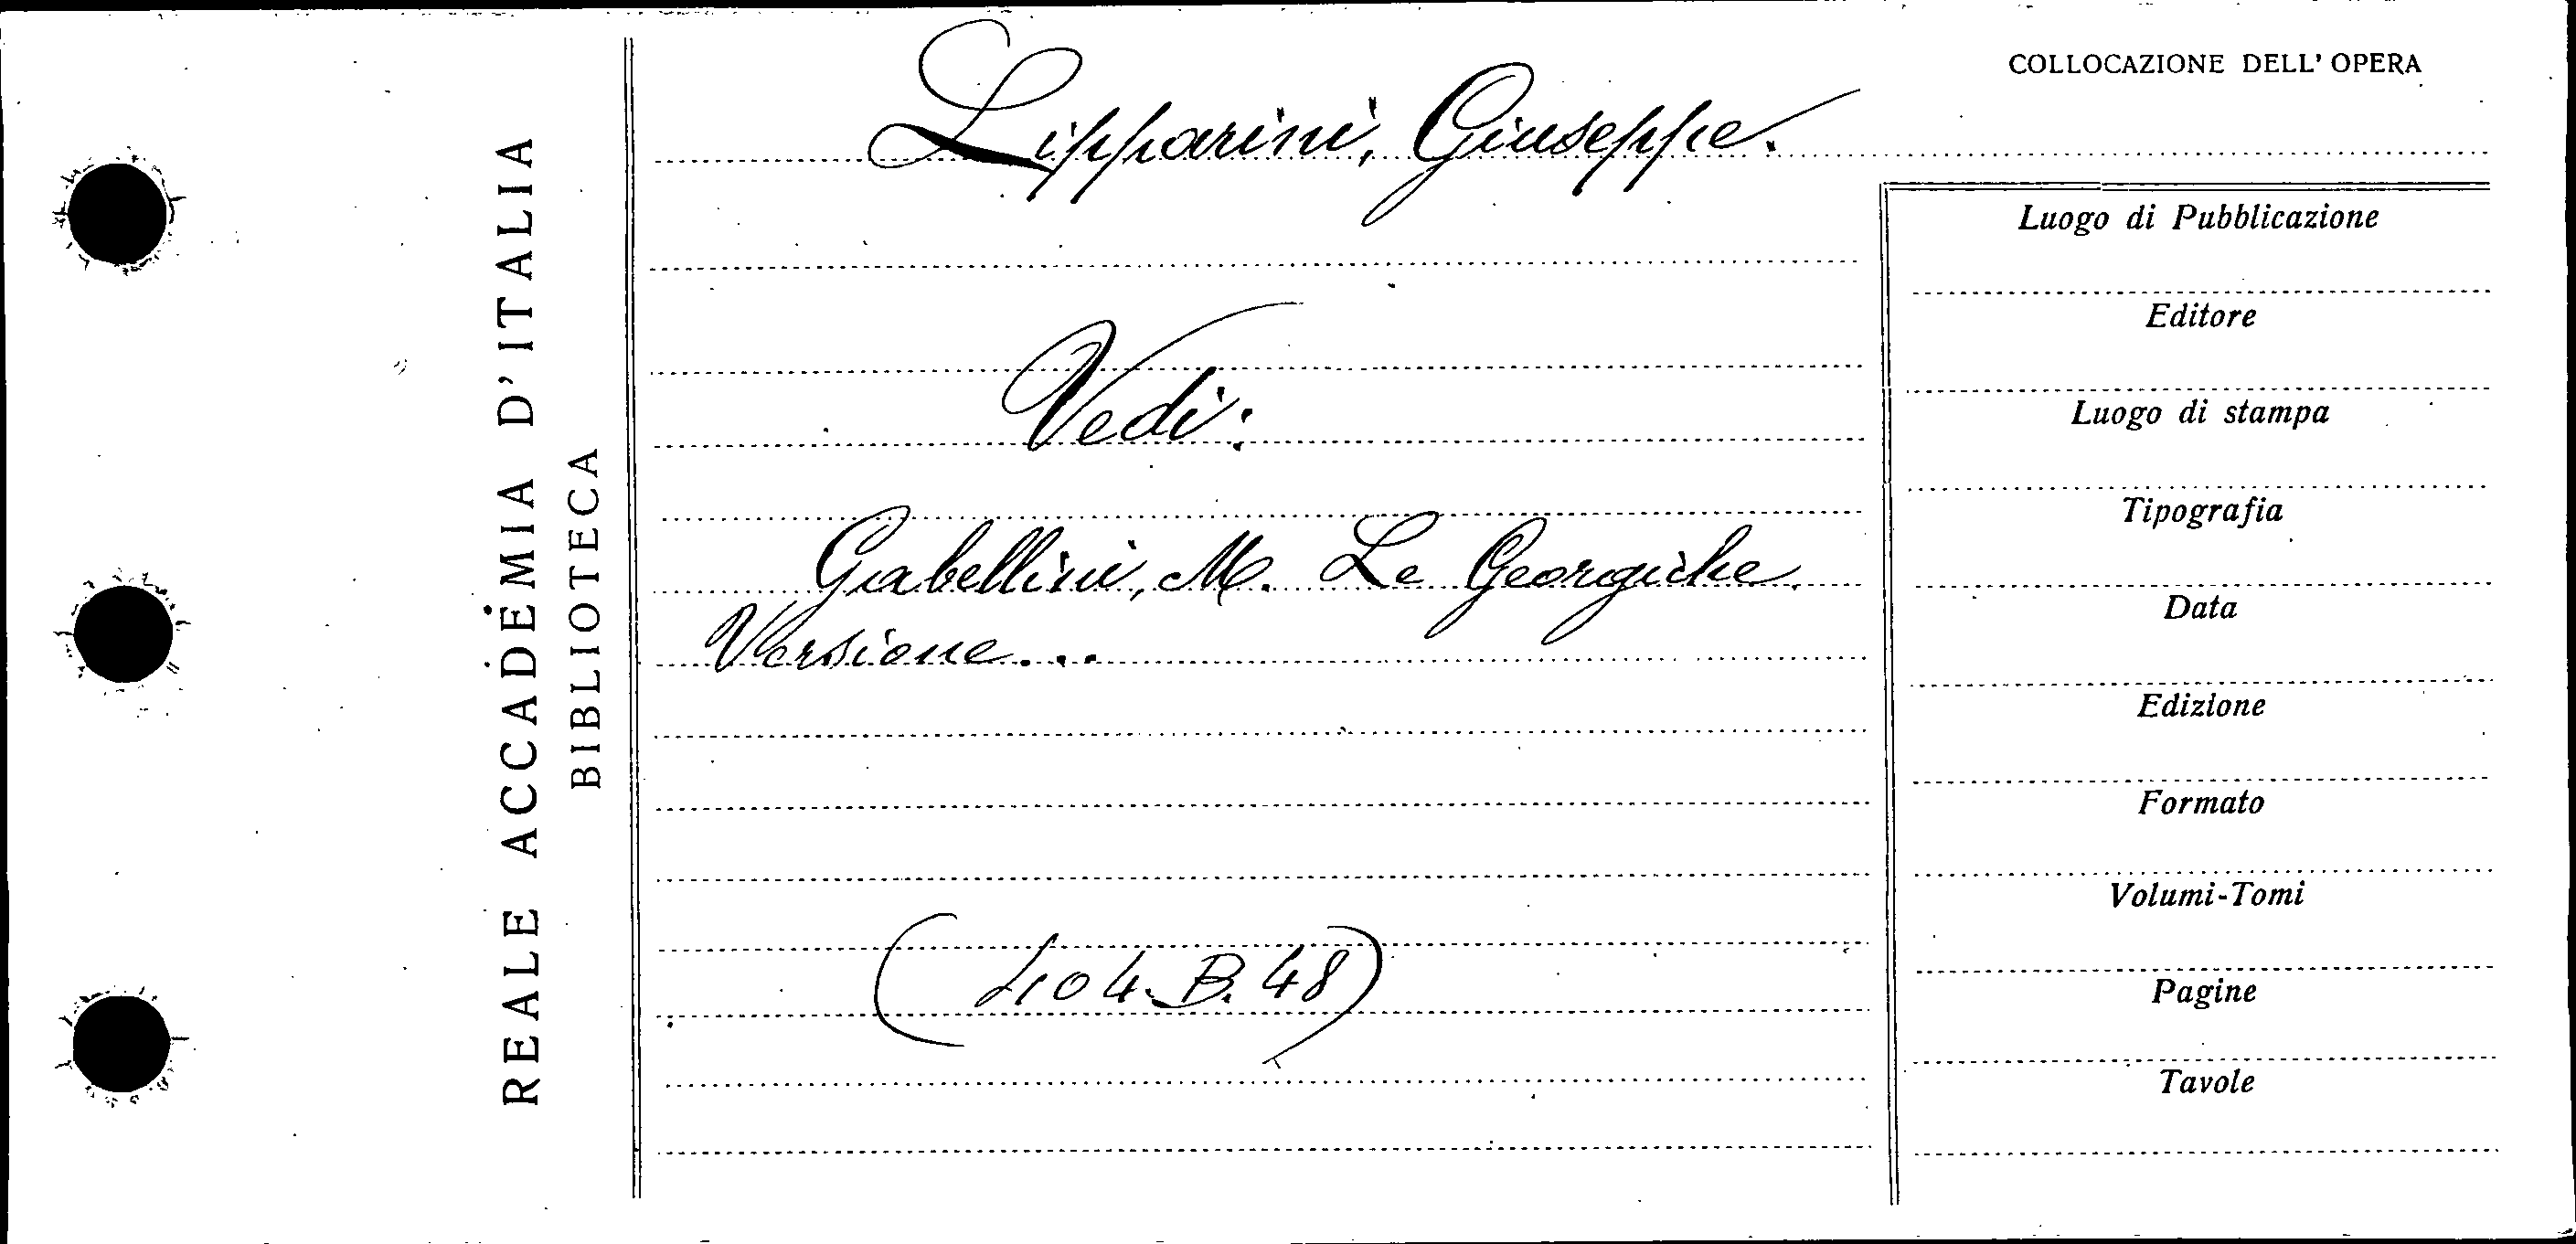 REALE ACCADEMIA D'ITALIA
BIBLIOTECA
Lipparini, Giuseppe.
Vedi:
Gabellini, M. Le Georgiche.
Versione...
(404.B.48)
COLLOCAZIONE DELL'OPERA
Luogo di Pubblicazione
Editore
Luogo di stampa
Tipografia
Data
Edizione
Formato
Volumi-Tomi
Pagine
Tavole